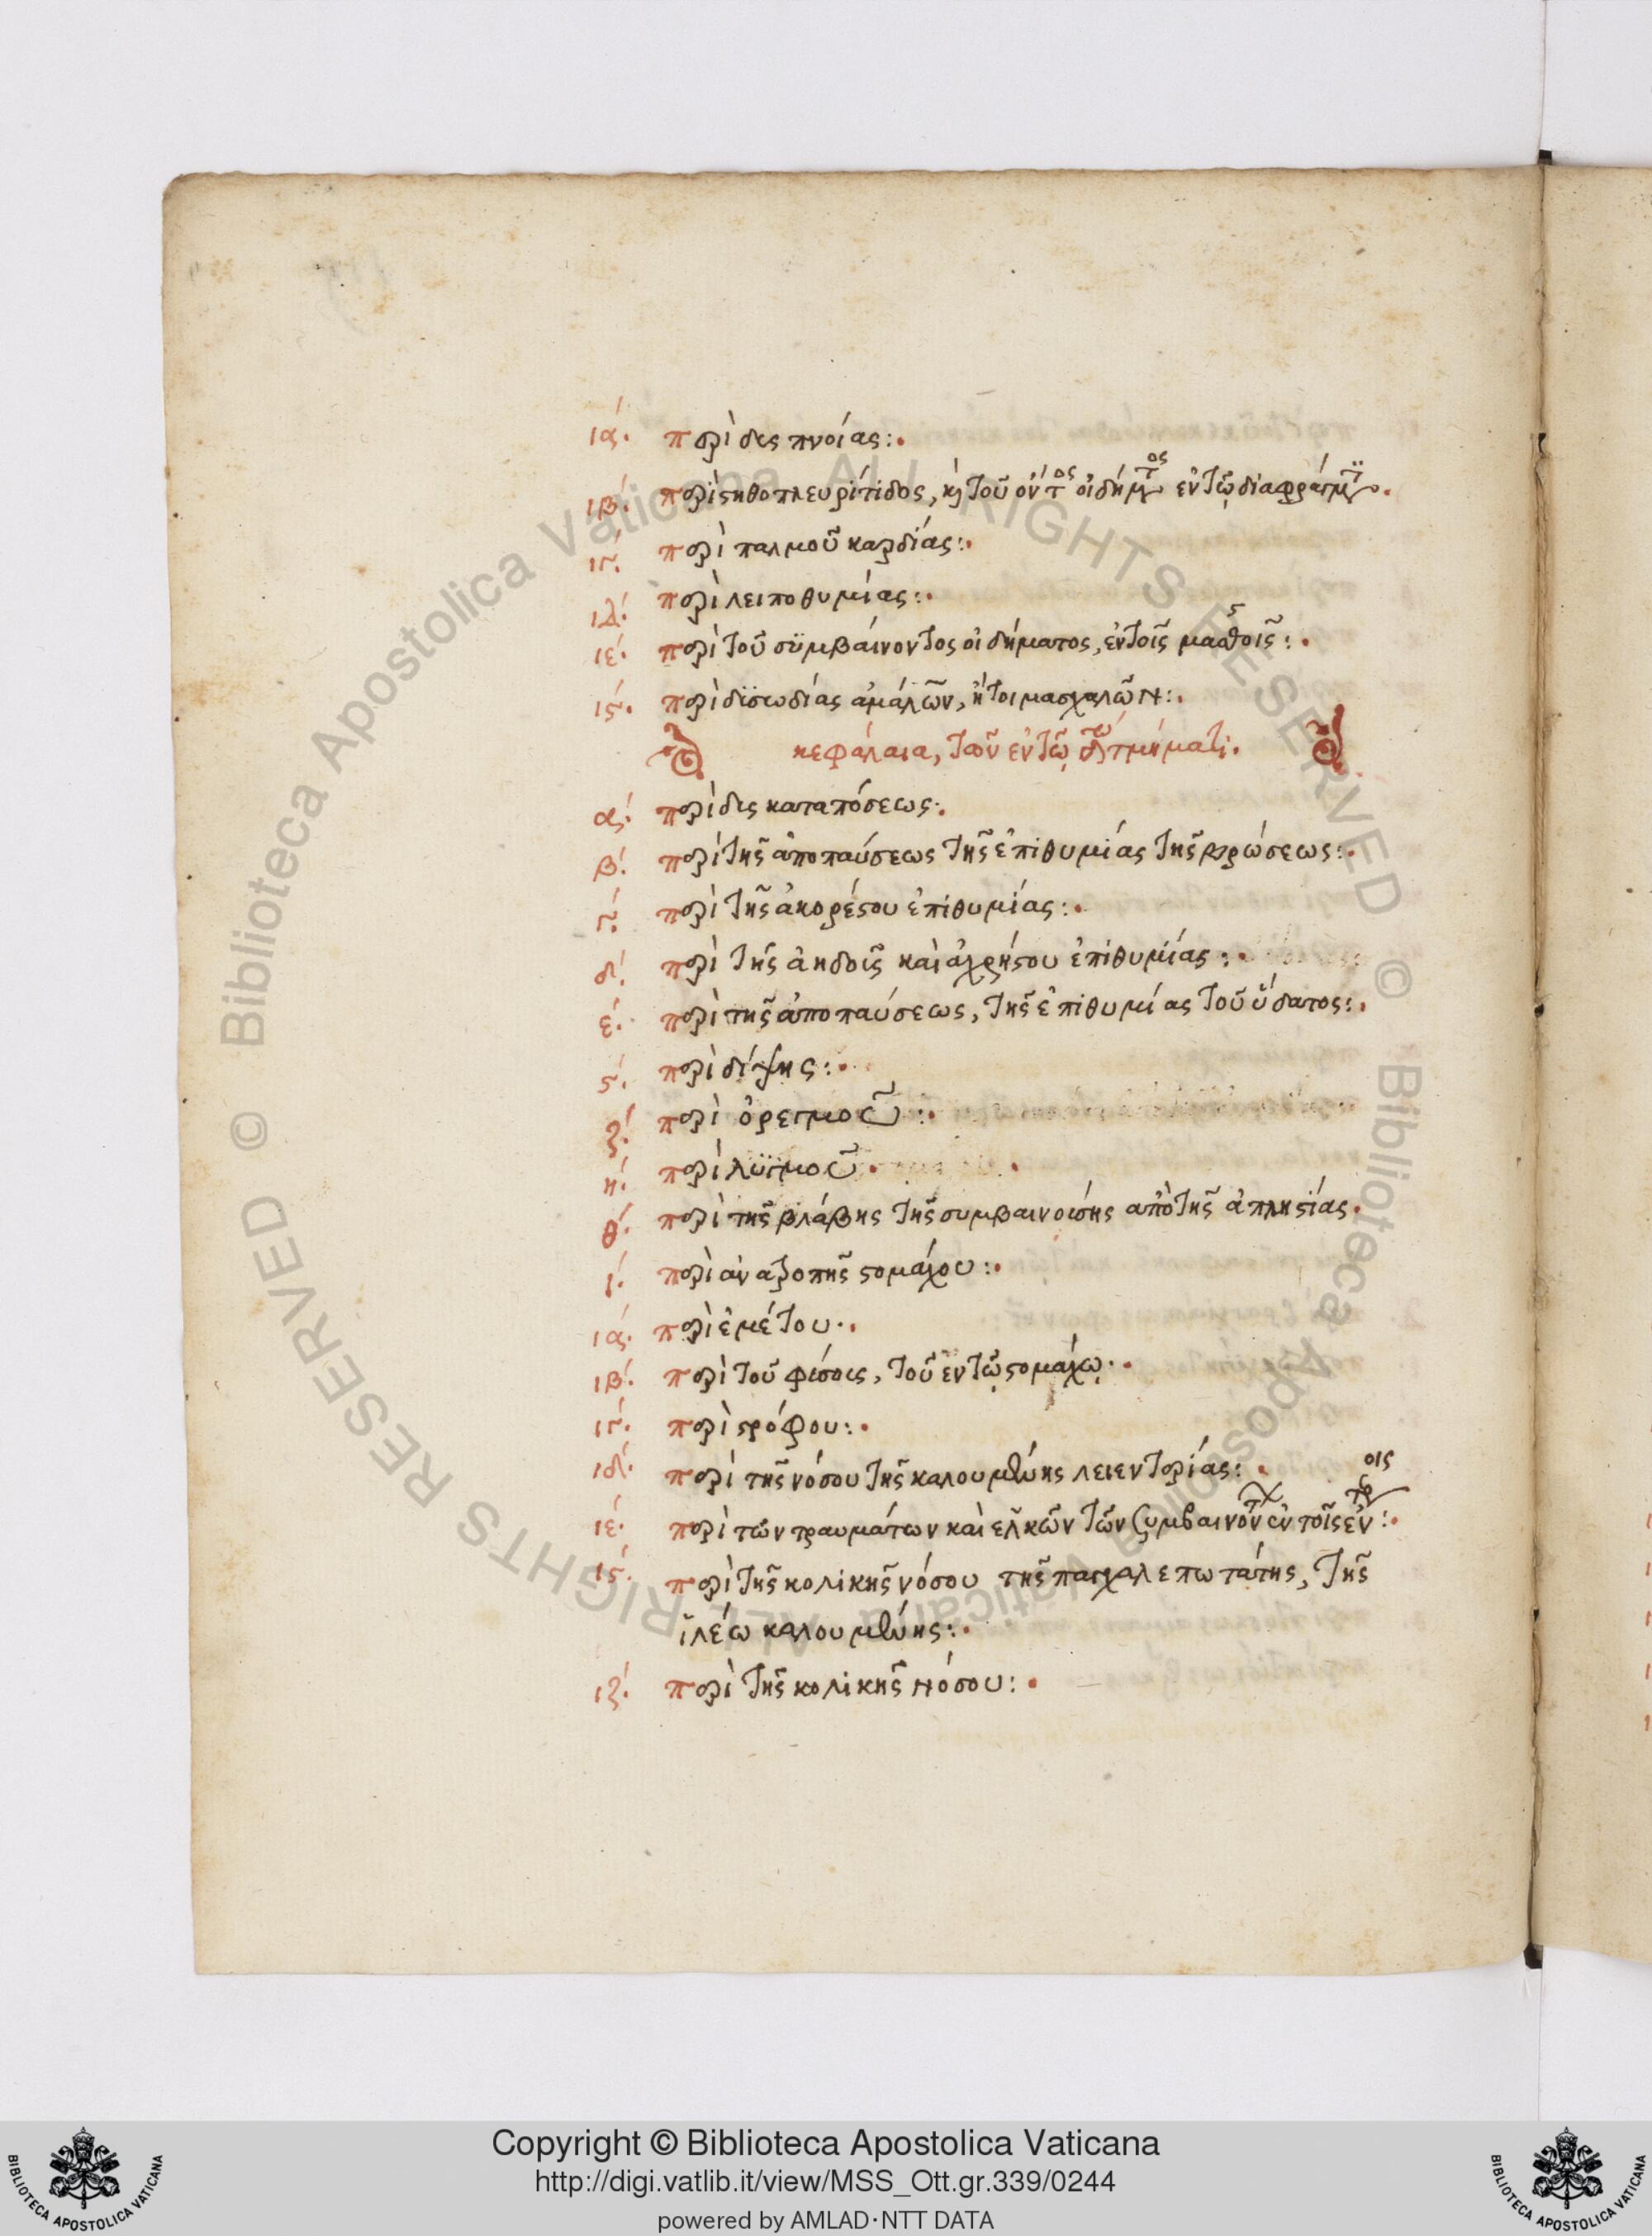 ια΄. περὶ δυςπνοίας:.
ιβ΄. περὶ στηθοπλευρίτιδος, καὶ τοῦ ὄντος οἰδήματος ἐν τῷ διαφράγματι.
ιγ΄. περὶ παλμοῦ καρδίας:.
ιδ΄. περὶ λειποθυμίας:.
ιε΄. περὶ τοῦ συμβαίνοντος οἰδήματος, ἐν τοῖς μασθοῖς:.
ις΄. περὶ δϊσωδίας ἀμάλῶν, ἤτοι μασχαλῶν:.
κεφάλαια, τῶν ἐν τῷ τμήματι.
α΄. περὶ δυς καταπόσεως.
β΄. περὶ τῆς ἀποπαύσεως τῆς ἐπιθυμίας τῆς βρώσεως:.
γ΄. περὶ τῆς ἀκορέστου ἐπιθυμίας:.
δ΄. περὶ τῆς ἀηδοῖς καὶ ἀχρήστου ἐπιθυμίας:.
ε΄. περὶ τῆς ἀποπαύσεως, τῆς ἐπιθυμίας τοῦ ὕδατος:.
ς΄. περὶ δίψης:.
ζ΄. περὶ ὀρεγμοῦ:.
η΄. περὶ λϋγμοῦ.
θ΄. περὶ τῆς βλάβης τῆς συμβαινούσης ἀπὸ τῆς ἀπληστίας.
ι΄. περὶ ἀνατροπῆς στομάχου:.
ια΄. περὶ ἐμέτου.
ιβ΄. περὶ τοῦ φύσους, τοῦ ἐν τῷ στομάχῳ.
ιγ΄. περὶ στρόφου:.
ιδ΄. περὶ τῆς νόσου τῆς καλουμένης λειεντερίας:.
ιε΄. περὶ τῶν τραυμάτων καὶ ἑλκῶν τῶν συμβαινόντων ἐν τοῖς ἐντέροις:.
ις΄. περὶ τῆς κολικῆς νόσου τῆς παγχαλεπωτάτης, τῆς
ἰλέω καλουμένης:.
ιζ΄. περὶ τῆς κολικῆς νόσου:.
© Biblioteca Apostolica Vaticana ALL RIGHTS RESERVED © Biblioteca Apostolica Vaticana ALL RIGHTS RESERVED
Copyright © Biblioteca Apostolica Vaticana
http://digi.vatlib.it/view/MSS_Ott.gr.339/0244
powered by AMLAD·NTT DATA
BIBLIOTECA APOSTOLICA VATICANA
BIBLIOTECA APOSTOLICA VATICANA